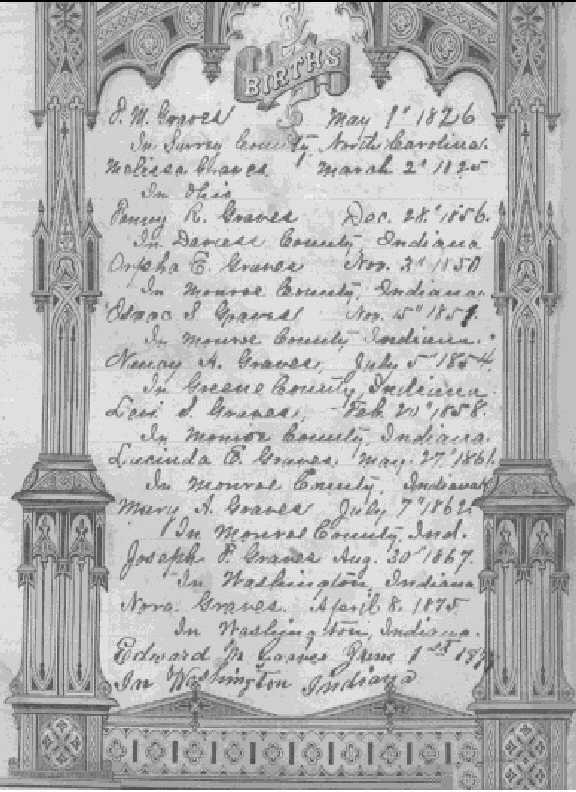 BIRTHS
J. M. Graves May 1st 1826
In Surrey County, North Carolina.
Melissa Graves March 2d 1825
In Ohio
R. Graves Dec. 28th 1856.
In Daviess County, Indiana
Orpha E. Graves Nov. 3d 1850
In Monroe County, Indiana.
Isaac S. Graves Nov. 15th
In Monroe County Indiana.
Nancy A. Graves, July 5th 1854
In Greene County, Indiana
Levi S. Graves, Feb. 20th 1858.
In Monroe County, Indiana.
Lucinda E. Graves. May. 27th 1861.
In Monroe County, Indiana
Mary A. Graves July 7th 1862
In Monroe County, Ind.
Joseph F. Graves Aug. 30th 1867.
In Washington, Indiana
Nora. Graves. April 8. 1875
In Washington, Indiana.
Edward M 1st
In Washington Indiana